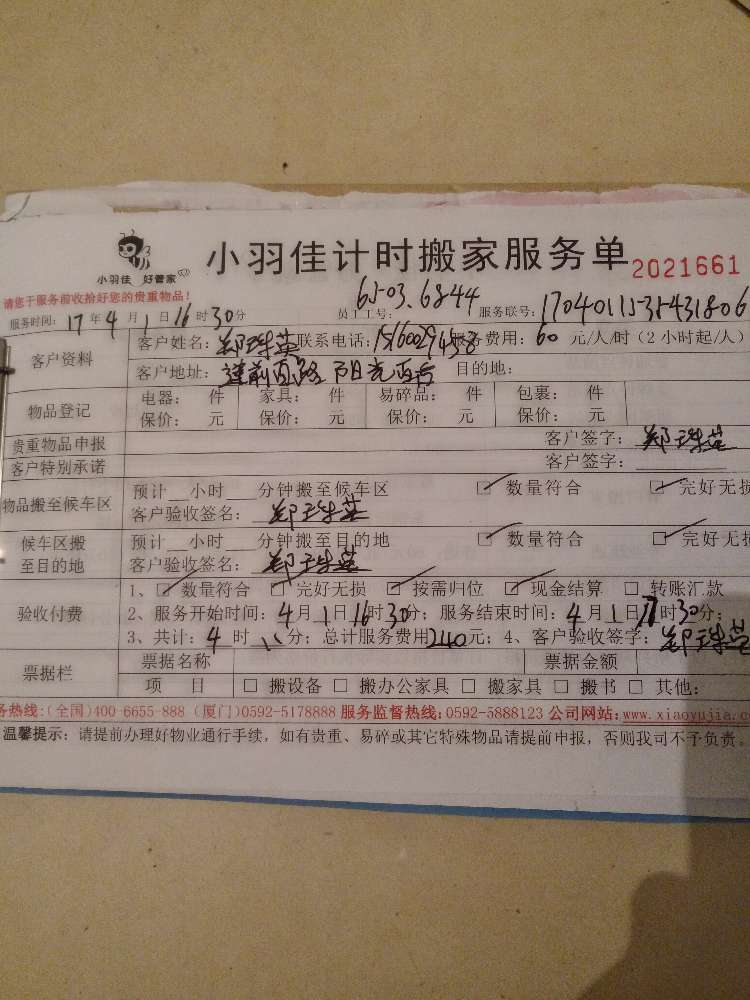 小羽佳 好管家
小羽佳计时搬家服务单 2021661
请您于服务前收拾好您的贵重物品!
服务时间: 17年4月1日16时30分 员工工号: 65-03.6844 服务联号: 170401115-35431806
客户资料 客户姓名: 郑珠英 联系电话: 15160029438 服务费用: 60 元/人/时(2小时起/人)
客户地址: 莲前西路 阳光百合 目的地:
物品登记 电器: 件 家具: 件 易碎品: 件 包裹: 件
保价: 元 保价: 元 保价: 元 保价: 元
贵重物品申报 客户签字: 郑珠英
客户特别承诺 客户签字:
物品搬至候车区 预计__小时__分钟搬至候车区 ☑ 数量符合 ☑ 完好无损
客户验收签名: 郑珠英
候车区搬至目的地 预计__小时__分钟搬至目的地 ☑ 数量符合 ☑ 完好无损
客户验收签名: 郑珠英
验收付费 1、☑ 数量符合 ☑ 完好无损 ☑ 按需归位 ☑ 现金结算 □ 转账汇款
2、服务开始时间: 4月1日16时30分; 服务结束时间: 4月1日17时30分;
3、共计: 4时 分; 总计服务费用240元; 4、客户验收签字: 郑珠英
票据栏 票据名称 票据金额
项 目 □ 搬设备 □ 搬办公家具 □ 搬家具 □ 搬书 □ 其他:
务热线:(全国)400-6655-888 (厦门)0592-5178888 服务监督热线:0592-5888123 公司网站:www.xiaoyujia.c
温馨提示: 请提前办理好物业通行手续, 如有贵重、易碎或其它特殊物品请提前申报, 否则我司不予负责。